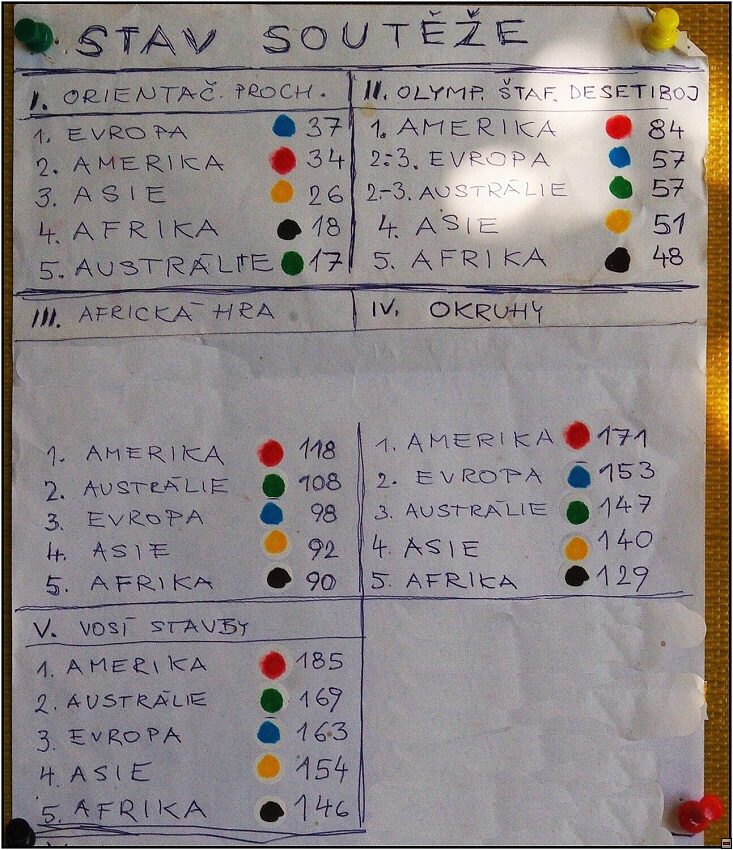 STAV SOUTĚŽE
I. ORIENTAČ. PROCH.
1. EVROPA 37
2. AMERIKA 34
3. ASIE 26
4. AFRIKA 18
5. AUSTRÁLIE 17
II. OLYMP. ŠTAF. DESETIBOJ
1. AMERIKA 84
2.-3. EVROPA 57
2.-3. AUSTRÁLIE 57
4. ASIE 51
5. AFRIKA 48
III. AFRICKÁ HRA
1. AMERIKA 118
2. AUSTRÁLIE 108
3. EVROPA 98
4. ASIE 92
5. AFRIKA 90
IV. OKRUHY
1. AMERIKA 171
2. EVROPA 153
3. AUSTRÁLIE 147
4. ASIE 140
5. AFRIKA 129
V. VOSÍ STAVBY
1. AMERIKA 185
2. AUSTRÁLIE 169
3. EVROPA 163
4. ASIE 154
5. AFRIKA 146